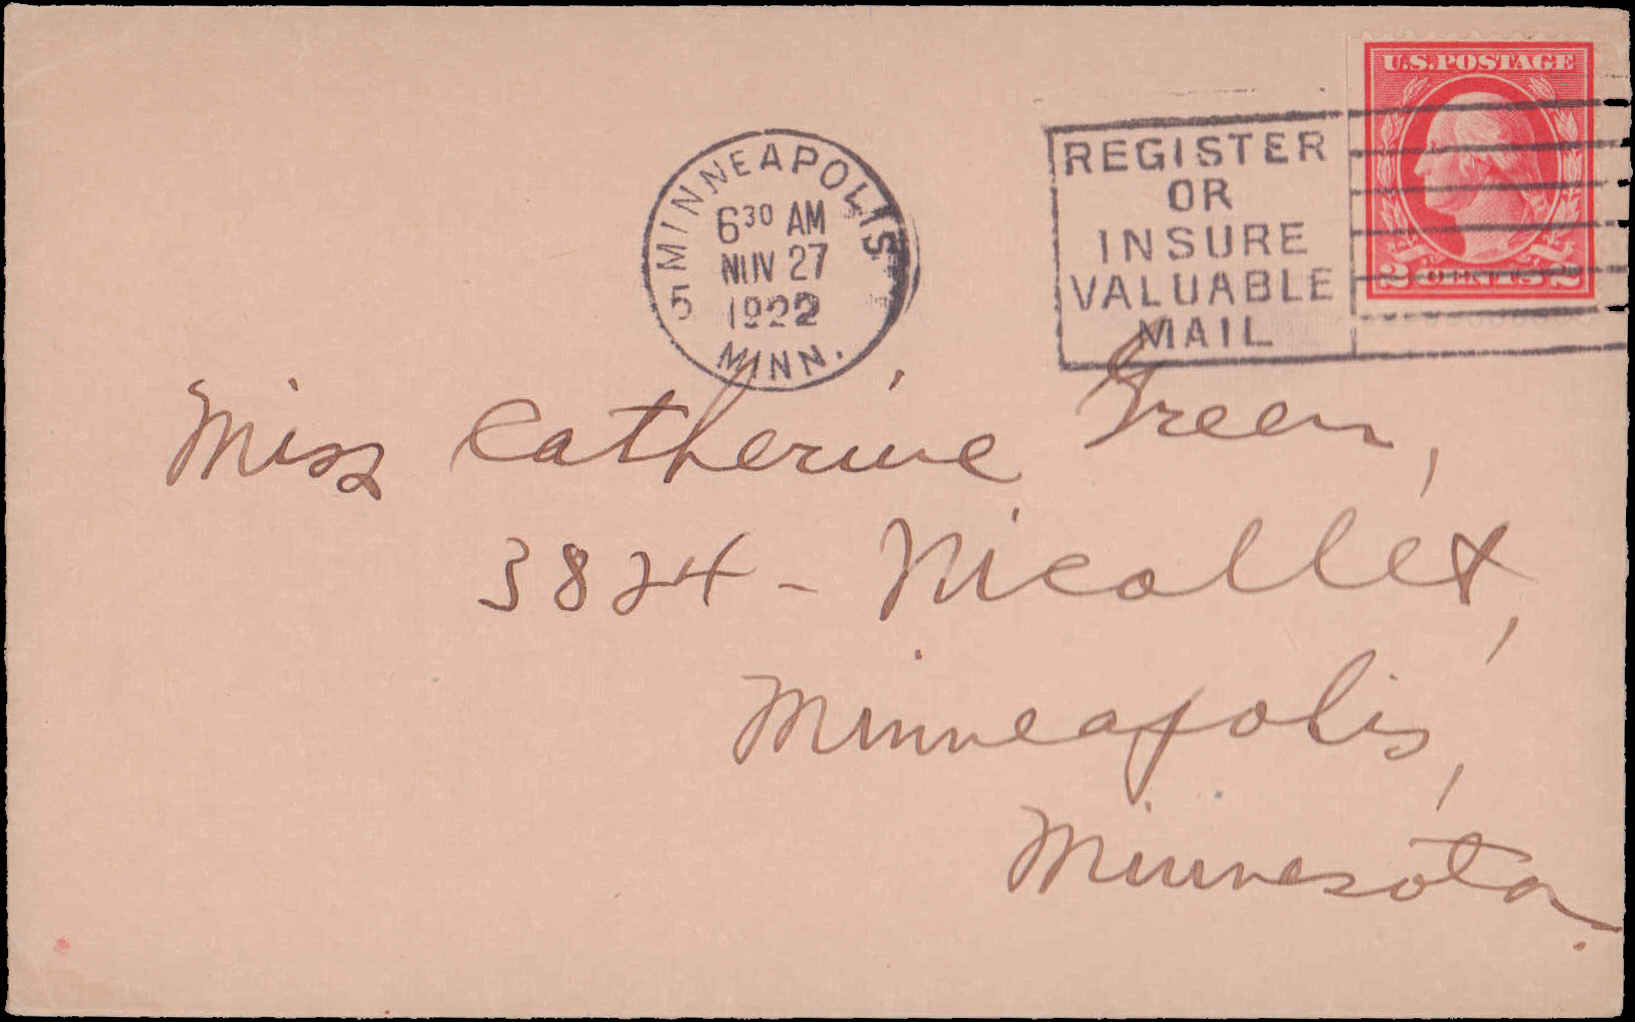 U.S. POSTAGE
2 CENTS 2
5 MINNEAPOLIS
6 30 AM
NOV 27
1922
MINN.
REGISTER
OR
INSURE
VALUABLE
MAIL
Miss Catherine Green,
3824 - Nicollet,
Minneapolis,
Minnesota.